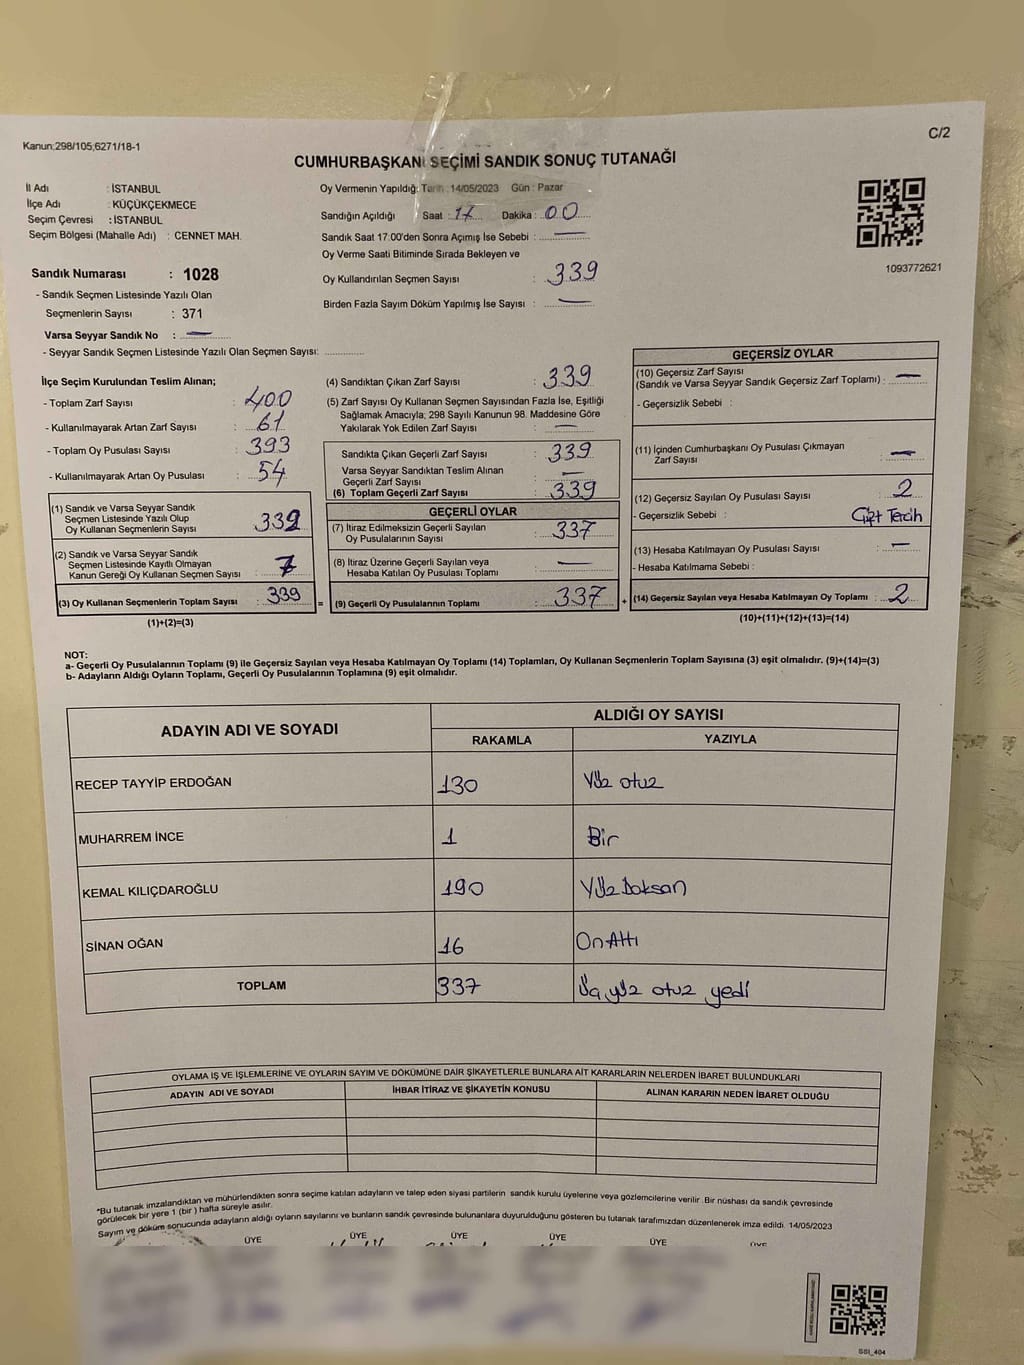 Kanun:298/105;6271/18-1
C/2
CUMHURBAŞKANI SEÇİMİ SANDIK SONUÇ TUTANAĞI
İl Adı : İSTANBUL
İlçe Adı : KÜÇÜKÇEKMECE
Seçim Çevresi : İSTANBUL
Seçim Bölgesi (Mahalle Adı) : CENNET MAH.
Sandık Numarası : 1028
- Sandık Seçmen Listesinde Yazılı Olan
Seçmenlerin Sayısı : 371
Varsa Seyyar Sandık No : —
- Seyyar Sandık Seçmen Listesinde Yazılı Olan Seçmen Sayısı: ..............
Oy Vermenin Yapıldığı: Tarih : 14/05/2023 Gün : Pazar
Sandığın Açıldığı Saat : 17 Dakika : 00
Sandık Saat 17:00'den Sonra Açımış İse Sebebi : —
Oy Verme Saati Bitiminde Sırada Bekleyen ve
Oy Kullandırılan Seçmen Sayısı : 339
Birden Fazla Sayım Döküm Yapılmış İse Sayısı : —
1093772621
İlçe Seçim Kurulundan Teslim Alınan;
- Toplam Zarf Sayısı : 400
- Kullanılmayarak Artan Zarf Sayısı : 61
- Toplam Oy Pusulası Sayısı : 393
- Kullanılmayarak Artan Oy Pusulası : 54
(1) Sandık ve Varsa Seyyar Sandık
Seçmen Listesinde Yazılı Olup
Oy Kullanan Seçmenlerin Sayısı : 339
(2) Sandık ve Varsa Seyyar Sandık
Seçmen Listesinde Kayıtlı Olmayan
Kanun Gereği Oy Kullanan Seçmen Sayısı :
(3) Oy Kullanan Seçmenlerin Toplam Sayısı : 339 =
(1)+(2)=(3)
(4) Sandıktan Çıkan Zarf Sayısı : 339
(5) Zarf Sayısı Oy Kullanan Seçmen Sayısından Fazla İse, Eşitliği
Sağlamak Amacıyla; 298 Sayılı Kanunun 98. Maddesine Göre
Yakılarak Yok Edilen Zarf Sayısı : —
Sandıkta Çıkan Geçerli Zarf Sayısı : 339
Varsa Seyyar Sandıktan Teslim Alınan
Geçerli Zarf Sayısı : —
(6) Toplam Geçerli Zarf Sayısı : 339
GEÇERLİ OYLAR
(7) İtiraz Edilmeksizin Geçerli Sayılan
Oy Pusulalarının Sayısı : 337
(8) İtiraz Üzerine Geçerli Sayılan veya
Hesaba Katılan Oy Pusulası Toplamı : —
(9) Geçerli Oy Pusulalarının Toplamı : 337 +
GEÇERSİZ OYLAR
(10) Geçersiz Zarf Sayısı
(Sandık ve Varsa Seyyar Sandık Geçersiz Zarf Toplamı) : —
- Geçersizlik Sebebi :
(11) İçinden Cumhurbaşkanı Oy Pusulası Çıkmayan
Zarf Sayısı : —
(12) Geçersiz Sayılan Oy Pusulası Sayısı : 2
- Geçersizlik Sebebi : Çift Tercih
(13) Hesaba Katılmayan Oy Pusulası Sayısı : —
- Hesaba Katılmama Sebebi :
(14) Geçersiz Sayılan veya Hesaba Katılmayan Oy Toplamı : 2
(10)+(11)+(12)+(13)=(14)
NOT:
a- Geçerli Oy Pusulalarının Toplamı (9) ile Geçersiz Sayılan veya Hesaba Katılmayan Oy Toplamı (14) Toplamları, Oy Kullanan Seçmenlerin Toplam Sayısına (3) eşit olmalıdır. (9)+(14)=(3)
b- Adayların Aldığı Oyların Toplamı, Geçerli Oy Pusulalarının Toplamına (9) eşit olmalıdır.
ADAYIN ADI VE SOYADI
ALDIĞI OY SAYISI
RAKAMLA YAZIYLA
RECEP TAYYİP ERDOĞAN 130 Yüz otuz
MUHARREM İNCE 1 Bir
KEMAL KILIÇDAROĞLU 190 Yüz Doksan
SİNAN OĞAN 16 On Altı
TOPLAM 337 Üç yüz otuz yedi
OYLAMA İŞ VE İŞLEMLERİNE VE OYLARIN SAYIM VE DÖKÜMÜNE DAİR ŞİKAYETLERLE BUNLARA AİT KARARLARIN NELERDEN İBARET BULUNDUKLARI
ADAYIN ADI VE SOYADI İHBAR İTİRAZ VE ŞİKAYETİN KONUSU ALINAN KARARIN NEDEN İBARET OLDUĞU
*Bu tutanak imzalandıktan ve mühürlendikten sonra seçime katılan adayların ve talep eden siyasi partilerin sandık kurulu üyelerine veya gözlemcilerine verilir .Bir nüshası da sandık çevresinde
görülecek bir yere 1 (bir ) hafta süreyle asılır.
Sayım ve döküm sonucunda adayların aldığı oyların sayılarını ve bunların sandık çevresinde bulunanlara duyurulduğunu gösteren bu tutanak tarafımızdan düzenlenerek imza edildi. 14/05/2023
ÜYE ÜYE ÜYE ÜYE ÜYE ÜYE
SSI_404